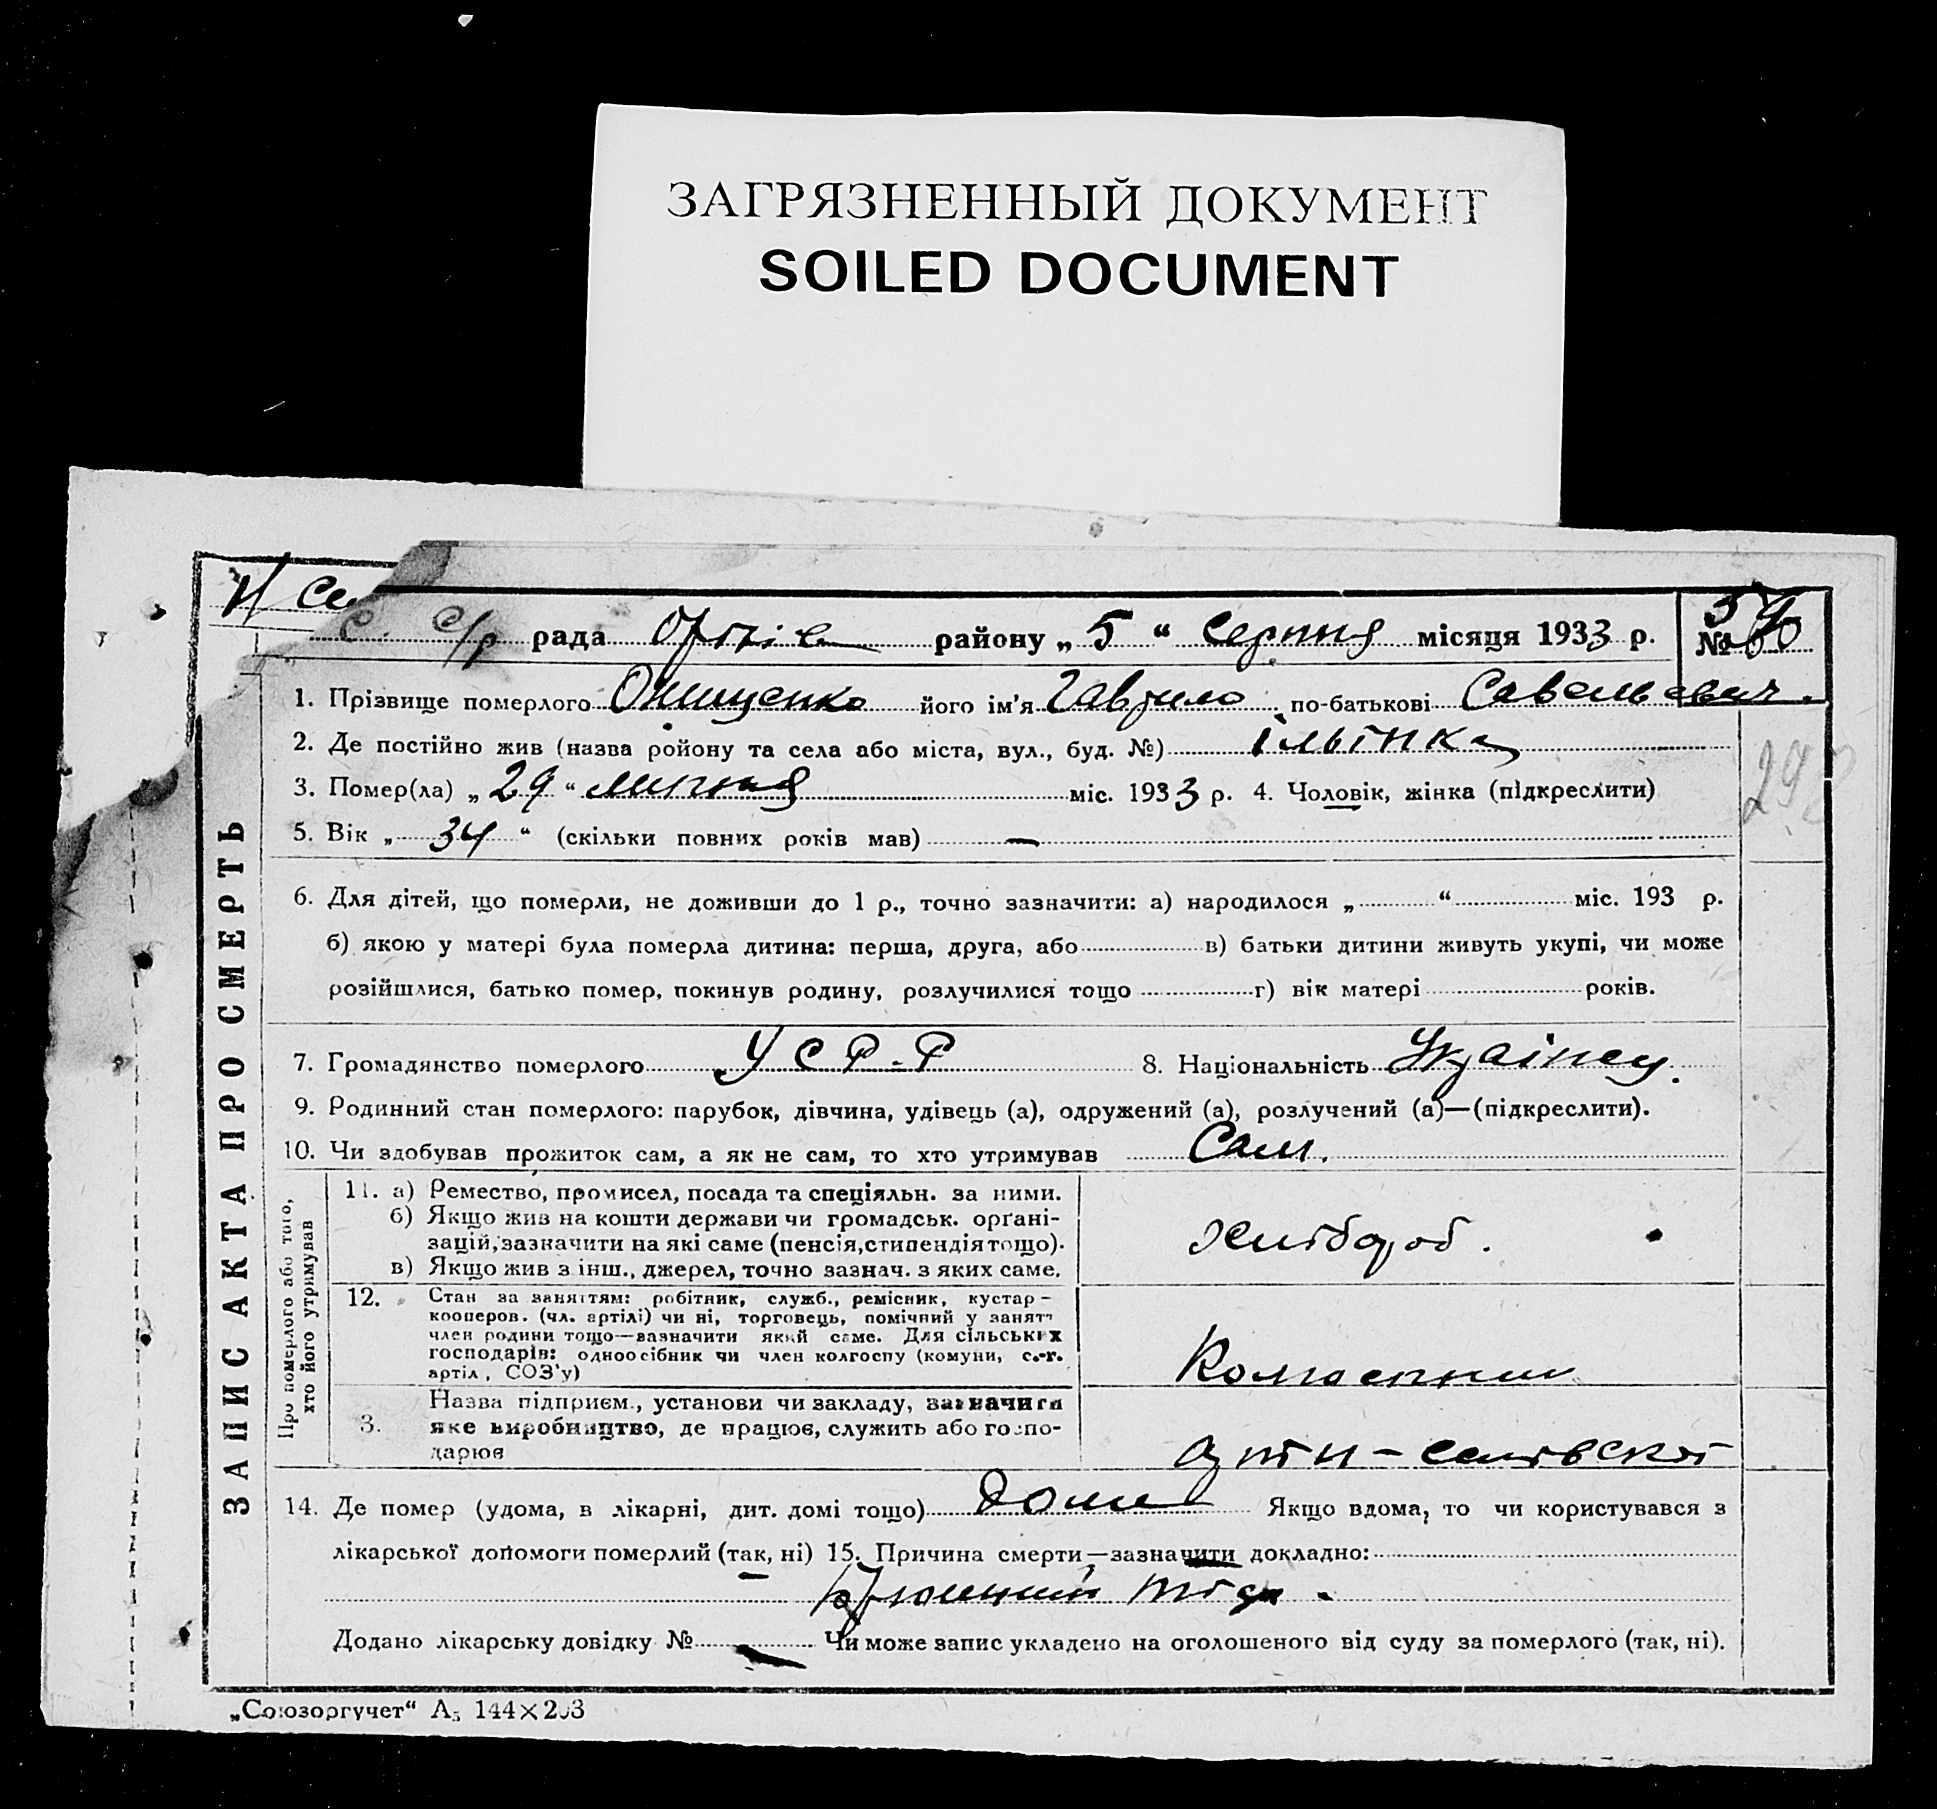 ЗАГРЯЗНЕННЫЙ ДОКУМЕНТ
SOILED DOCUMENT
с/р рада району „5“ Серпня місяця 1933 р. №
1. Прізвище померлого Онищенко його ім'я Гаврило по-батькові Савельевич.
2. Де постійно жив (назва ройону та села або міста, вул., буд. №) Ільїнка
3. Помер(ла) „29“ липня міс. 1933 р. 4. Чоловік, жінка (підкреслити)
5. Вік „34“ (скільки повних років мав) —
6. Для дітей, що померли, не доживши до 1 р., точно зазначити: а) народилося „ “ міс. 193 р.
б) якою у матері була померла дитина: перша, друга, або в) батьки дитини живуть укупі, чи може
розійшлися, батько помер, покинув родину, розлучилися тощо г) вік матері років.
7. Громадянство померлого УСРР 8. Національність Українец.
9. Родинний стан померлого: парубок, дівчина, удівець (а), одружений (а), розлучений (а)—(підкреслити).
10. Чи здобував прожиток сам, а як не сам, то хто утримував Сам.
ЗАПИС АКТА ПРО СМЕРТЬ
Про померлого або того,
хто його утримував
11. а) Ремество, промисел, посада та спеціяльн. за ними.
б) Якщо жив на кошти держави чи громадськ. органі-
зацій, зазначити на які саме (пенсія, стипендія тощо).
в) Якщо жив з інш., джерел, точно зазнач. з яких саме.
Хлібороб.
12. Стан за заняттям: робітник, служб., ремісник, кустар-
кооперов. (чл. артілі) чи ні, торговець, помічний у занятт
член родини тощо—зазначити який саме. Для сільських
господарів: одноосібник чи член колгоспу (комуни, с.-г.
артіл, СОЗ'у)
Колгоспник
3. Назва підприєм., установи чи закладу, зазначити
яке виробництво, де працює, служить або госпо-
дарює
14. Де помер (удома, в лікарні, дит. домі тощо) Дома Якщо вдома, то чи користувався з
лікарської допомоги померлий (так, ні) 15. Причина смерти—зазначити докладно:
Додано лікарську довідку № Чи може запис укладено на оголошеного від суду за померлого (так, ні).
„Союзоргучет“ А5 144×203